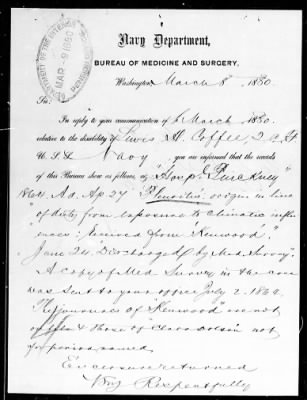 Navy Department,
BUREAU OF MEDICINE AND SURGERY,
DEPARTMENT OF THE INTERIOR
MAR 9 1880
PENSION
Washington, March 8, 1880
Sir:
In reply to your communication of March 1880.
relative to the disability of Lewis A. Coffee, 2 C.
U.S.S. Navy you are informed that the records
of this Bureau show as follows, of "Hosp. Pinckney"
1864. Ad. Ap 27 Pleuritis. origin in line
of duty, from exposure to climatic influ-
ences: received from "Kenwood".
June 24. "Discharged by Med. Survey."
A copy of Med Survey in the case
was sent to your office July 2. 186
The journals of "Kenwood" are not
on file & those of not
for period named
Enclosure returned
Very Respectfully